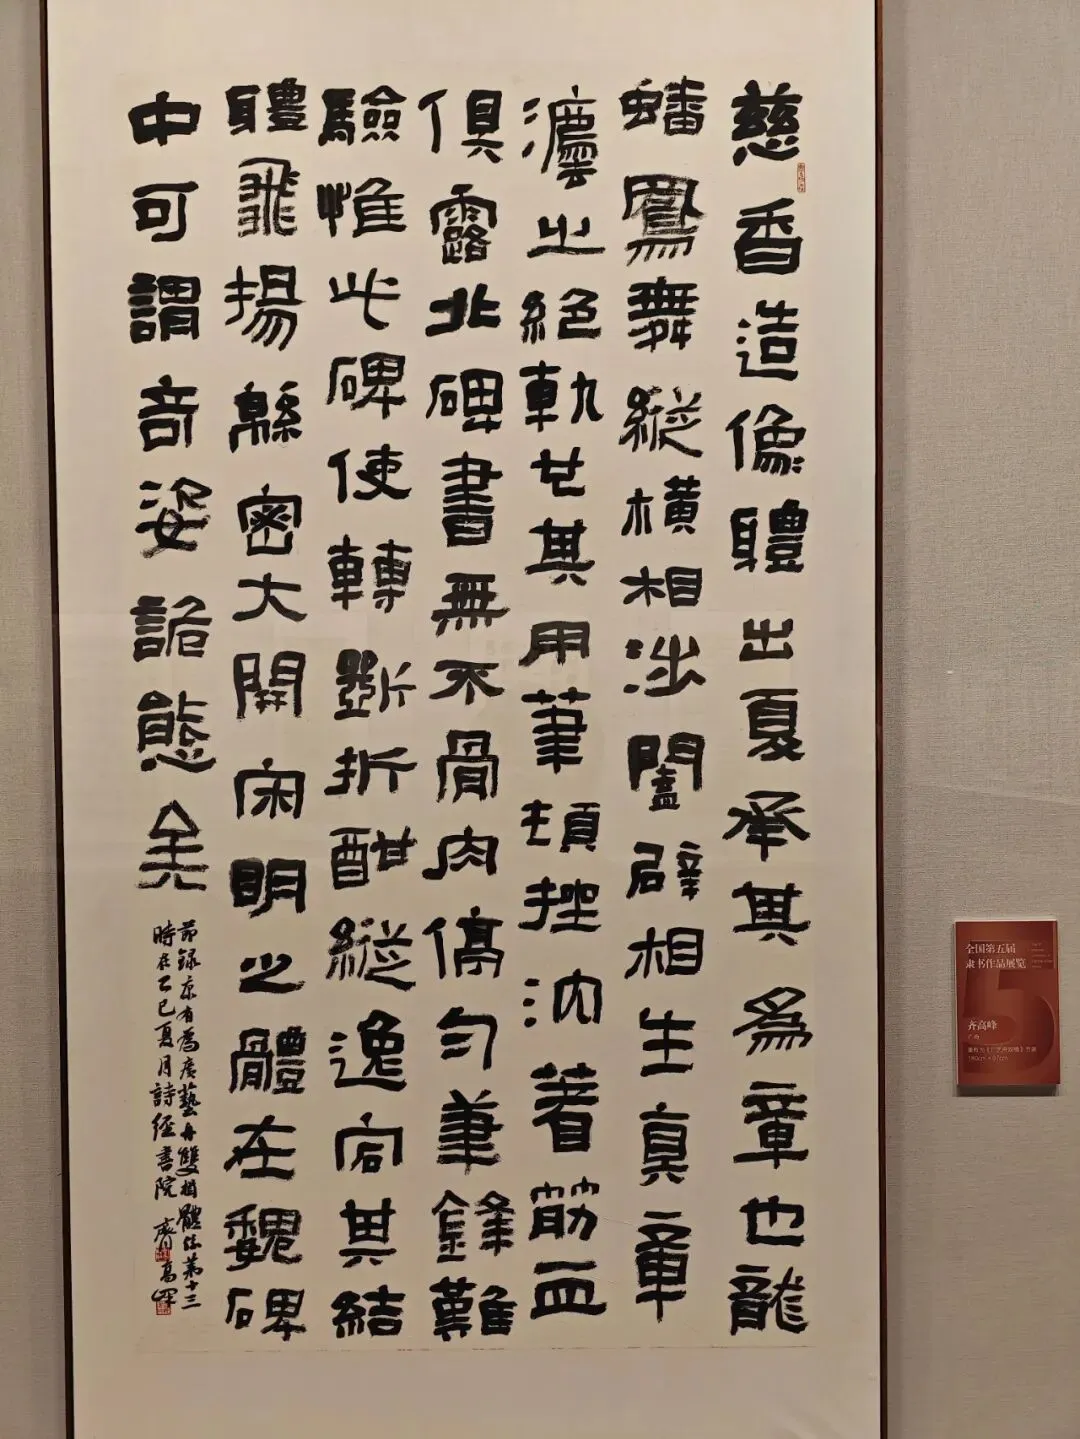 慈香造像體出夏承其為章也龍
蟠鳳舞縱橫相涉闔辟相生真章
灋之絕軌也其用筆頓挫沈著筋血
俱露北碑書無不骨肉停勻筆鋒難
驗惟此碑使轉斷折酣縱逸宕其結
體飛揚緜密大開宋明之體在魏碑
中可謂奇姿詭態矣
節錄康有為廣藝舟雙楫體系第十三
時在乙巳夏月詩經書院齊高峰
全国第五届
隶书作品展览
齐高峰
康有为《广艺舟双楫》节录
180cm×97cm